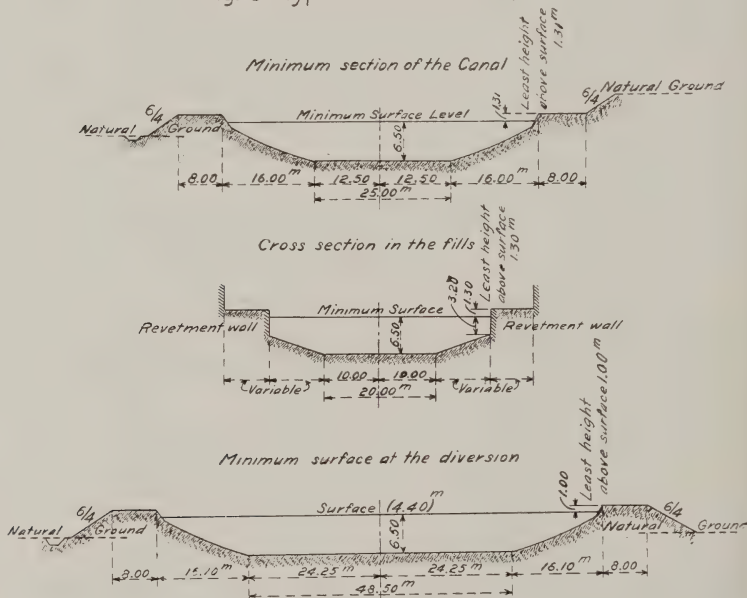 Minimum section of the Canal
Least height
above surface
1.31 m
Natural Ground
6/4
6/4
1.31
Minimum Surface Level
Natural Ground
6.50
8.00 16.00 m 12.50 12.50 16.00 m 8.00
25.00 m
Cross section in the fills
Least height
above surface
1.30 m
3.20
1.30
Minimum Surface
Revetment wall
6.50
Revetment wall
10.00 10.00
"Variable" 20.00 m "Variable"
Minimum surface at the diversion
Least height
above surface 1.00 m
1.00
6/4
Surface (4.40) m
6/4
Natural Ground
6.50
Natural Ground
8.00 15.10 m 24.25 m 24.25 m 16.10 m 8.00
48.50 m